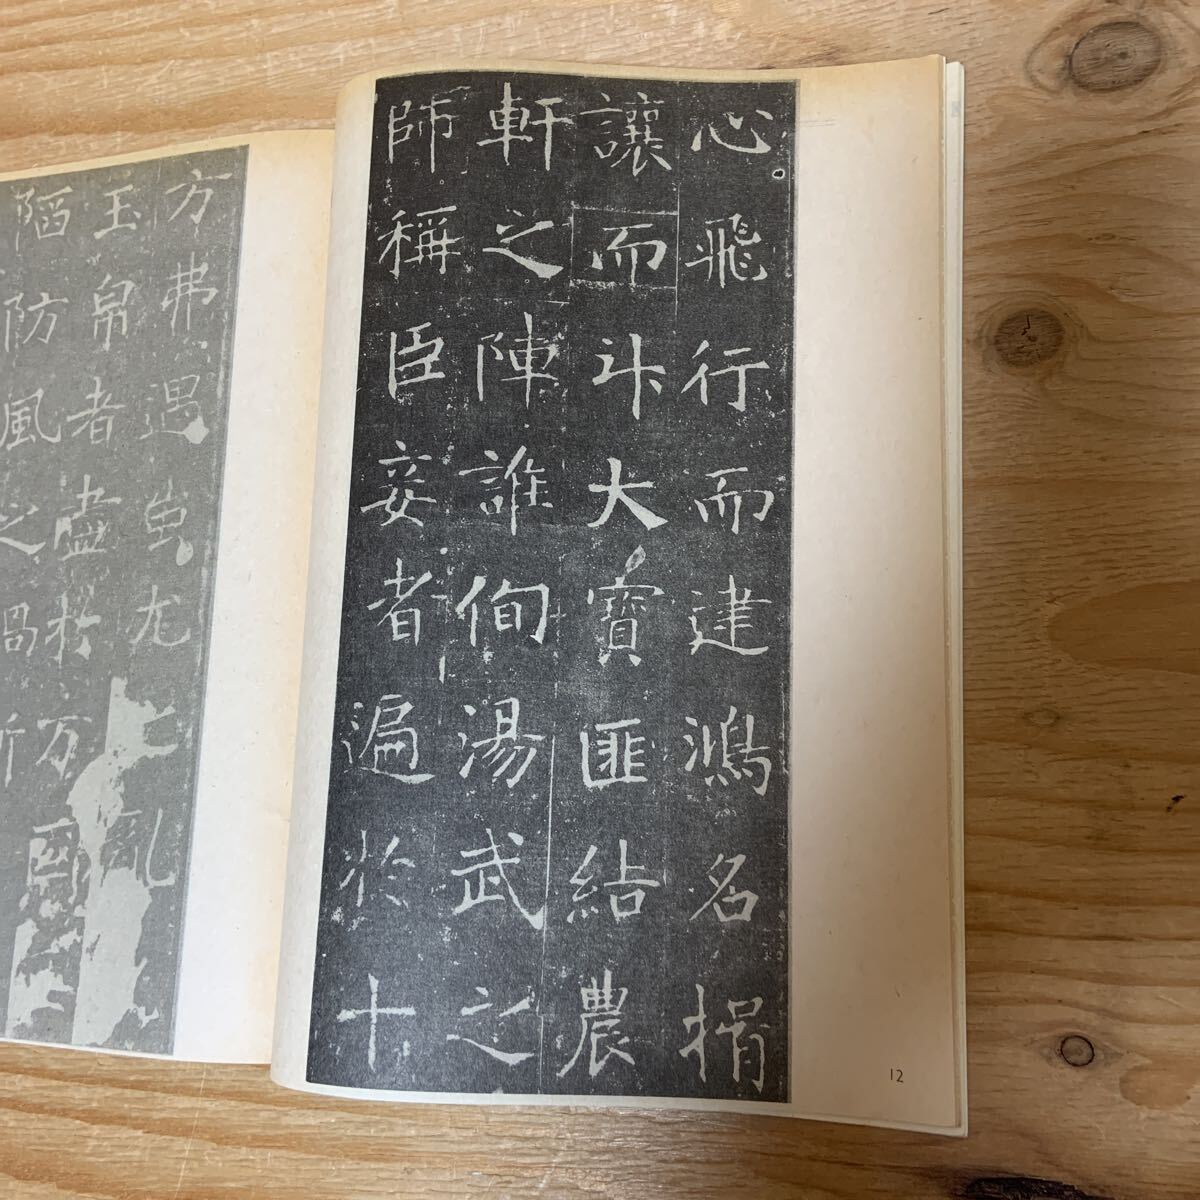 心飛行而建鴻名揖
讓而升大寶匪結農
軒之陣誰侚湯武之
師稱臣妾者遍於十
12
方弗遇蚩尤之亂
玉帛者盡於万國
陷防風之禍